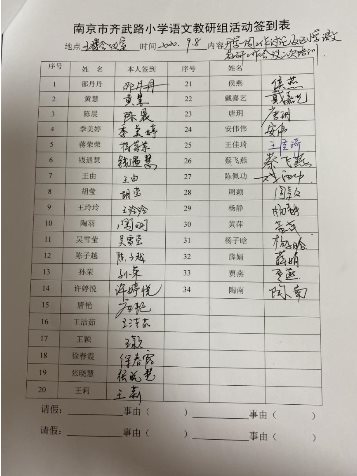 南京市齐武路小学语文教研组活动签到表
地点 时间 2020. 9.8 内容
序号 姓名 本人签到 序号 姓名
1 邵丹丹 邵丹丹 21 侯燕 侯燕
2 黄慧 黄慧 22 戴嘉艺 戴嘉艺
3 陈晨 陈晨 23 唐玥 唐玥
4 李美婷 李美婷 24 安伟伟 安伟
5 蒋荣荣 蒋荣荣 25 王佳琦 王佳琦
6 钱进慧 钱进慧 26 蔡飞燕 蔡飞燕
7 王由 王由 27 陈佩功
8 胡莹 胡莹 28
9 王玲玲 王玲玲 29 杨静 杨静
10 陶羽 陶羽 30 黄萍 黄萍
11 吴雪莹 吴雪莹 31 杨子晗 杨子晗
12 陈子越 陈子越 32 薛娟 薛娟
13 孙荣 孙荣 33 贾燕 贾燕
14 许婷悦 许婷悦 34 陶南 陶南
15 唐艳 唐艳
16 王洁茹 王洁茹
17 王颖 王颖
18 徐春霞 徐春霞
19 张晓慧 张晓慧
20 王莉 王莉
请假: 事由( ) 事由( )
请假: 事由( ) 事由( )